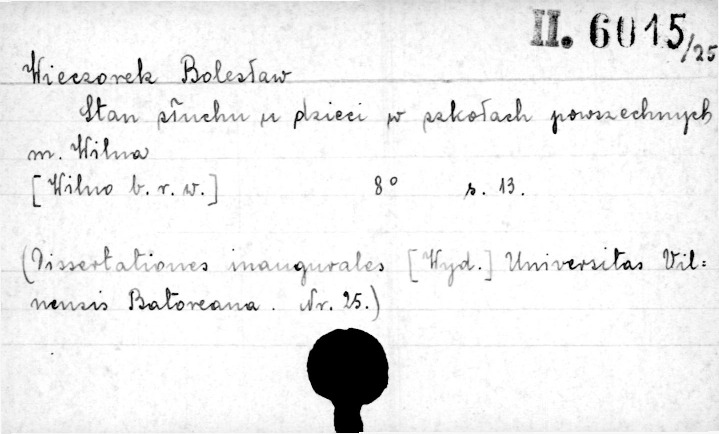 II. 6015/25
Wieczorek Bolesław
Stan słuchu u dzieci w szkołach powszechnych
m. Wilna
[Wilno b. r. w.] 8° s. 13.
(Dissertationes inaugurales [Wyd.] Universitas Vil=
nensis Batoreana. Nr. 25.)